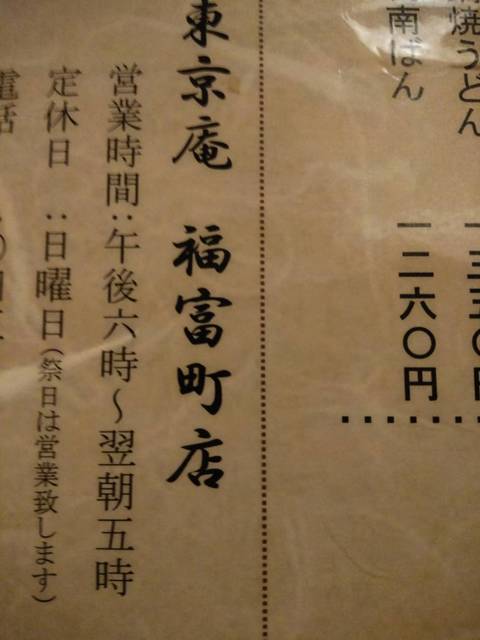 焼うどん 一三五〇円
南ばん 一二六〇円
東京庵 福富町店
営業時間:午後六時〜翌朝五時
定休日:日曜日(祭日は営業致します)
電話